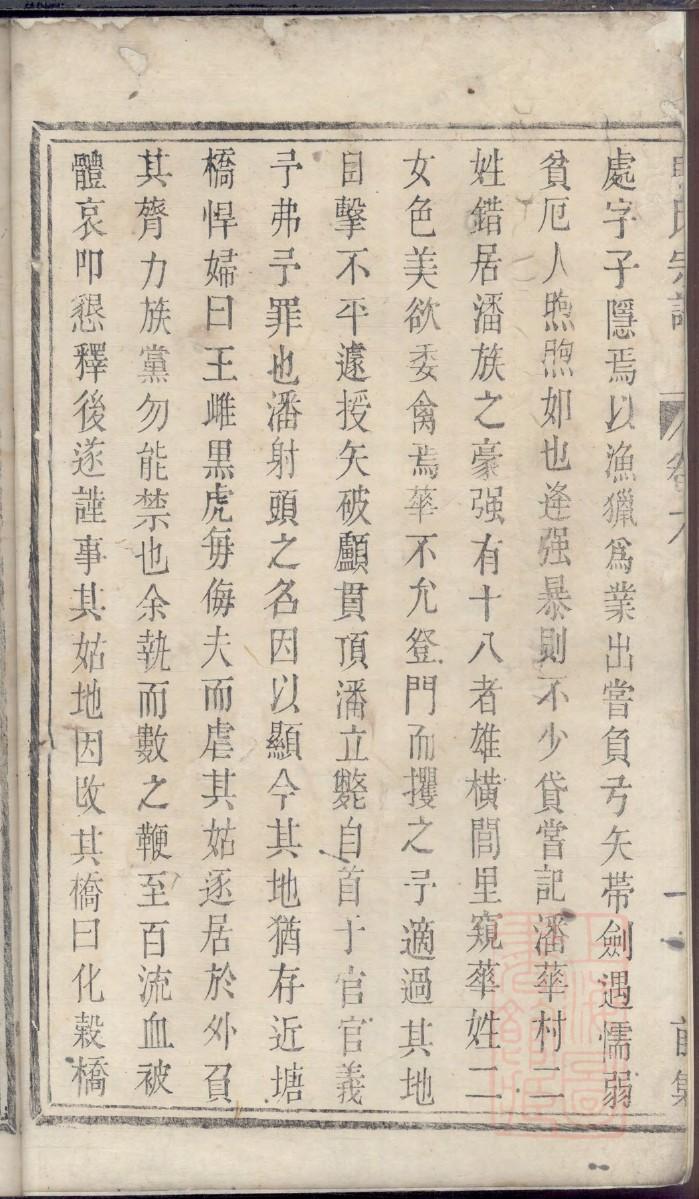 處字子隱焉以漁獵爲業出嘗負弓矢帶劍遇懦弱
貧厄人煦煦如也逢强暴則不少貸嘗記潘華村二
姓錯居潘族之豪强有十八者雄橫閭里窺華姓二
女色美欲委禽焉華不允登門而攫之予適過其地
目擊不平遽授矢破顱貫頂潘立斃自首于官官義
予弗予罪也潘射頭之名因以顯今其地猶存近塘
橋悍婦曰王雌黑虎每侮夫而虐其姑逐居於外負
其膂力族黨勿能禁也余執而數之鞭至百流血被
體哀叩懇釋後遂謹事其姑地因改其橋曰化穀橋
氏宗譜 卷六 一 前集